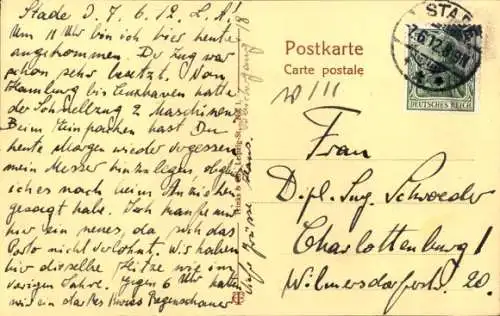 Stade d. 7.6.12. L. A!
Um 11 Uhr bin ich hier heute
angekommen. Der Zug war
schon sehr besetzt. Von
Hamburg bis Cuxhaven hatte
der Schnellzug 2 Maschinen.
Beim Einpacken hast Du
heute Morgen wieder vergessen
mein Messer hinzulegen, obgleich
ich es noch beim Anziehen
gesagt habe. Ich kaufe mir
hier ein neues, da sich das
Porto nicht verlohnt. Wir haben
hier dieselbe Hitze wie im
vorigen Jahre. Gegen 6 Uhr hatten
wir ein starkes Regenschauer
Postkarte
Carte postale
STADE
7.6.12.
DEUTSCHES REICH
W III
Frau
Dipl. Ing. Schroeder
Charlottenburg 1
Wilmersdorferstr. 20.